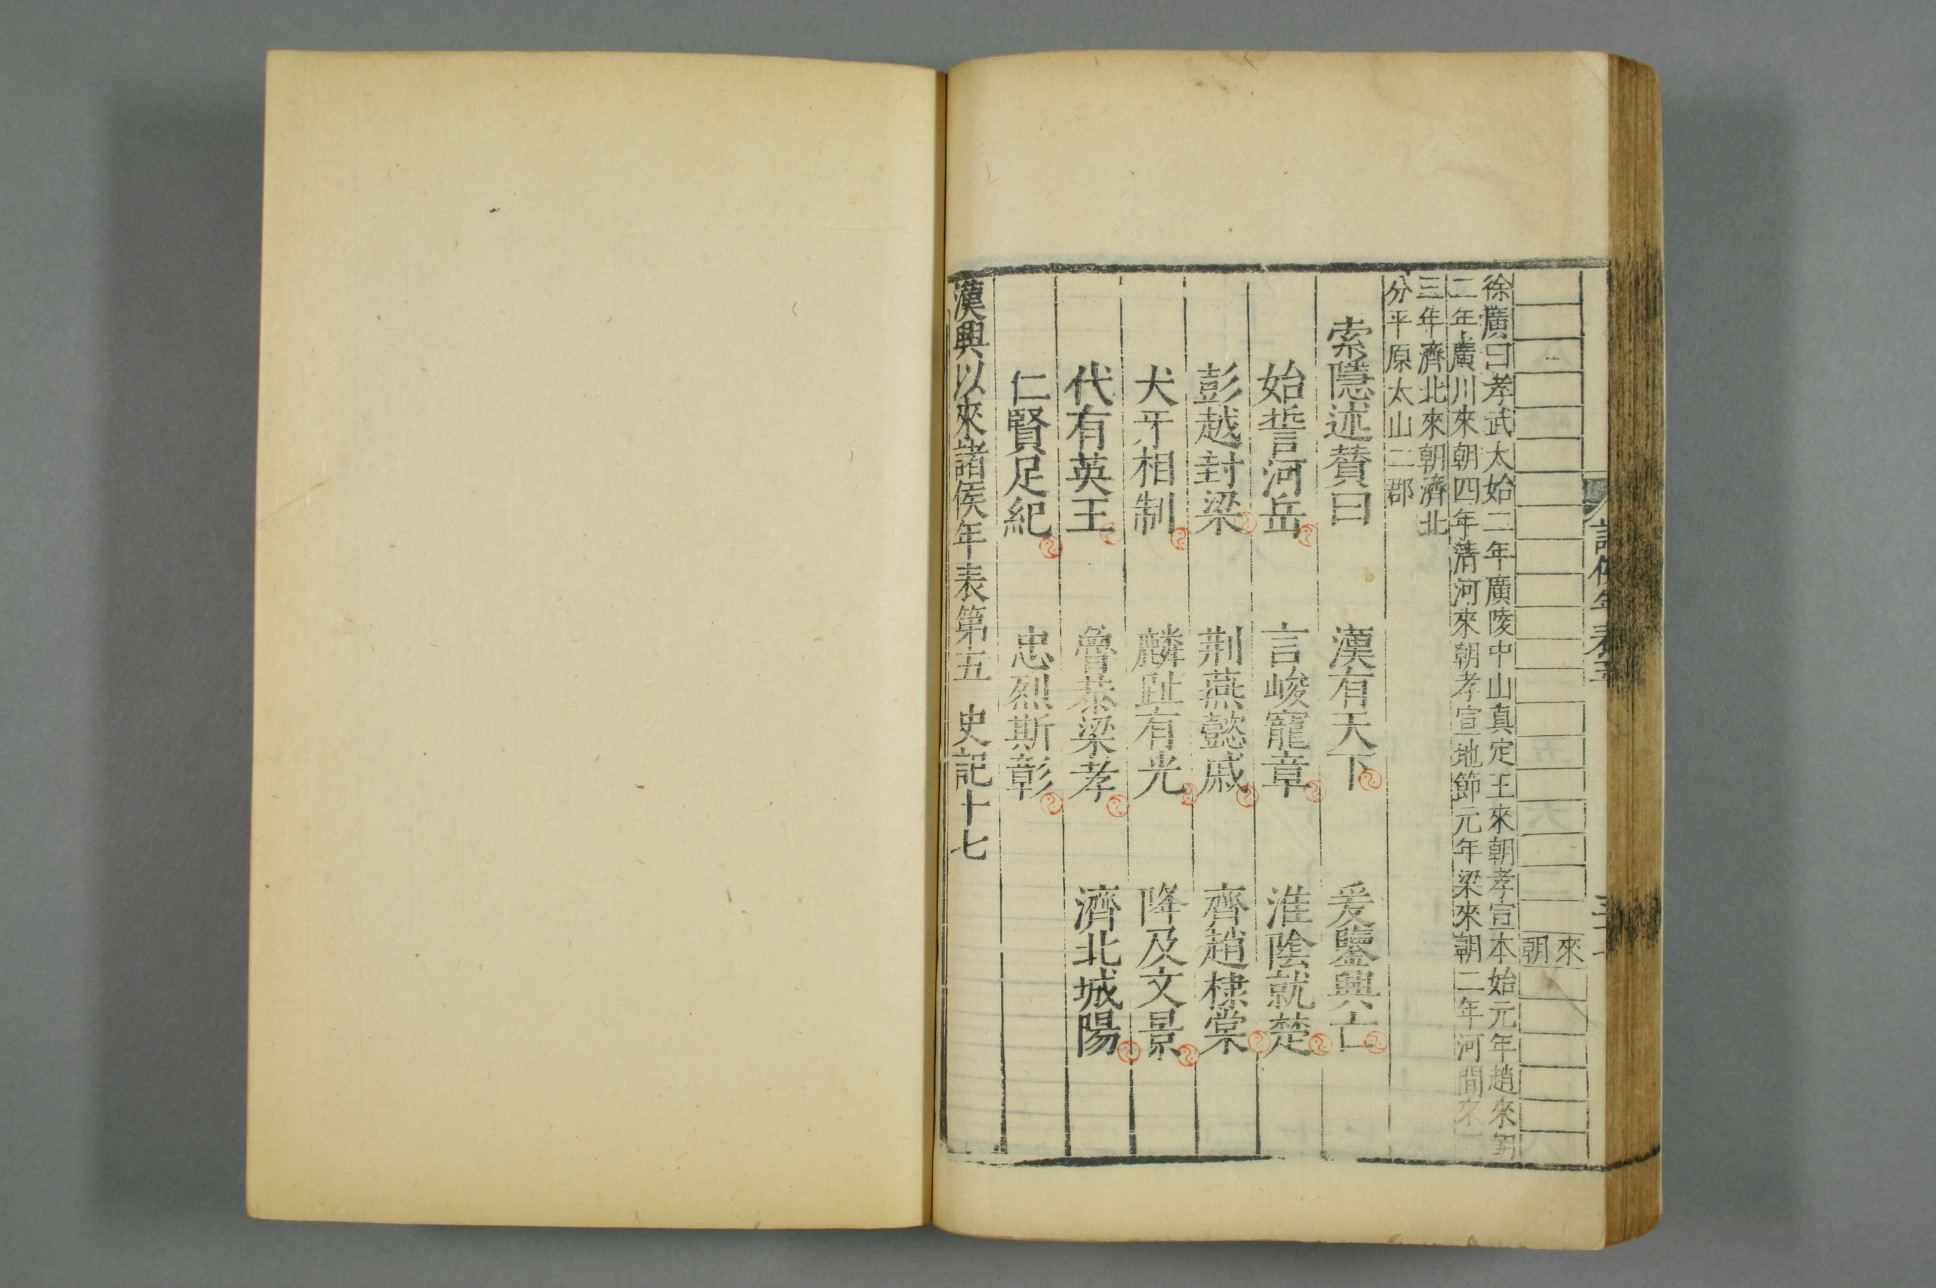 來
朝
徐廣曰孝武太始二年廣陵中山真定王來朝孝宣本始元年趙來朝
二年廣川來朝四年清河來朝孝宣地節元年梁來朝二年河間來
三年濟北來朝濟北
分平原太山二郡
索隱述贊曰 漢有天下 爰鑒興亡
始誓河岳 言峻寵章 淮陰就楚
彭越封梁 荆燕懿戚 齊趙棣棠
犬牙相制 麟趾有光 降及文景
代有英王 魯恭梁孝 濟北城陽
仁賢足紀 忠烈斯彰
漢興以來諸侯年表第五 史記十七